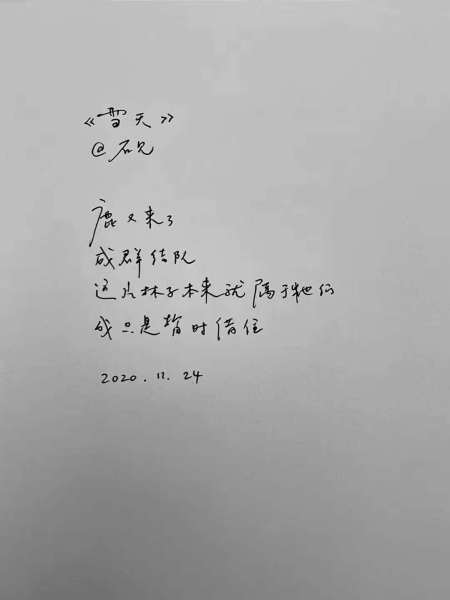 《雪天》
@石兄
鹿又来了
成群结队
这片林子本来就属于牠们
我只是暂时借住
2020.11.24